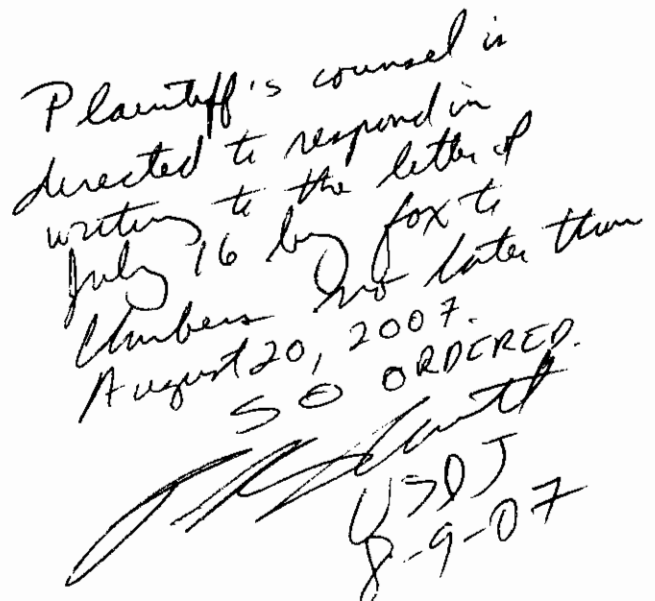 Plaintiff's counsel is
directed to respond in
writing to the letter of
July 16 by fax to
Chambers no later than
August 20, 2007.
SO ORDERED.
USDJ
8-9-07